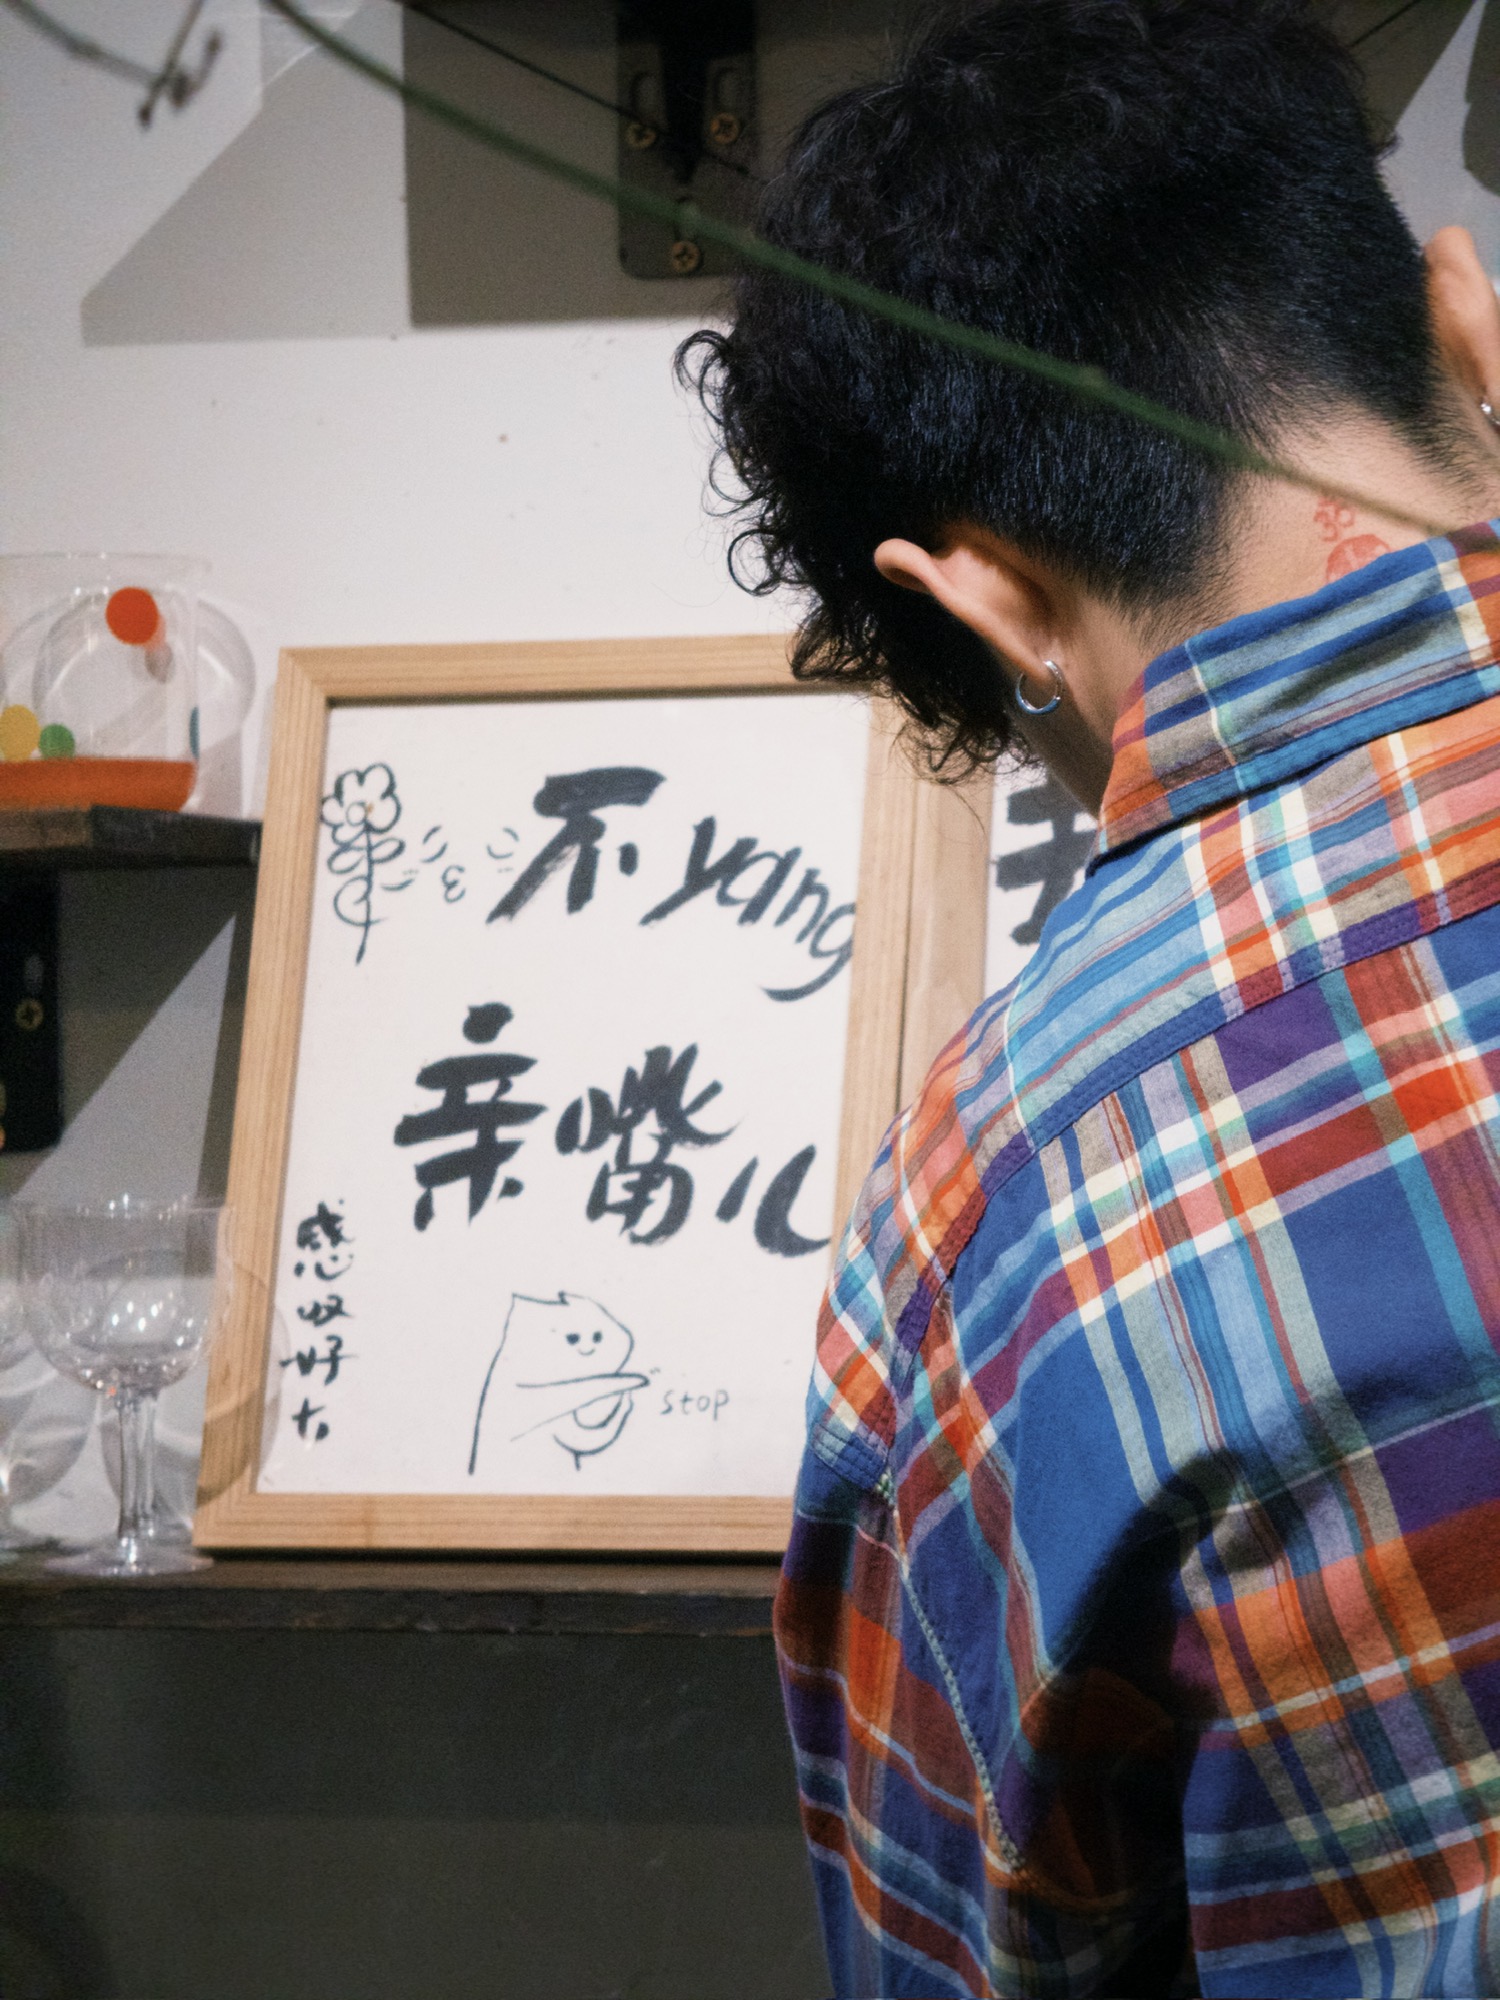 不yang
亲嘴儿
感
収
好
大
stop
我
ॐ